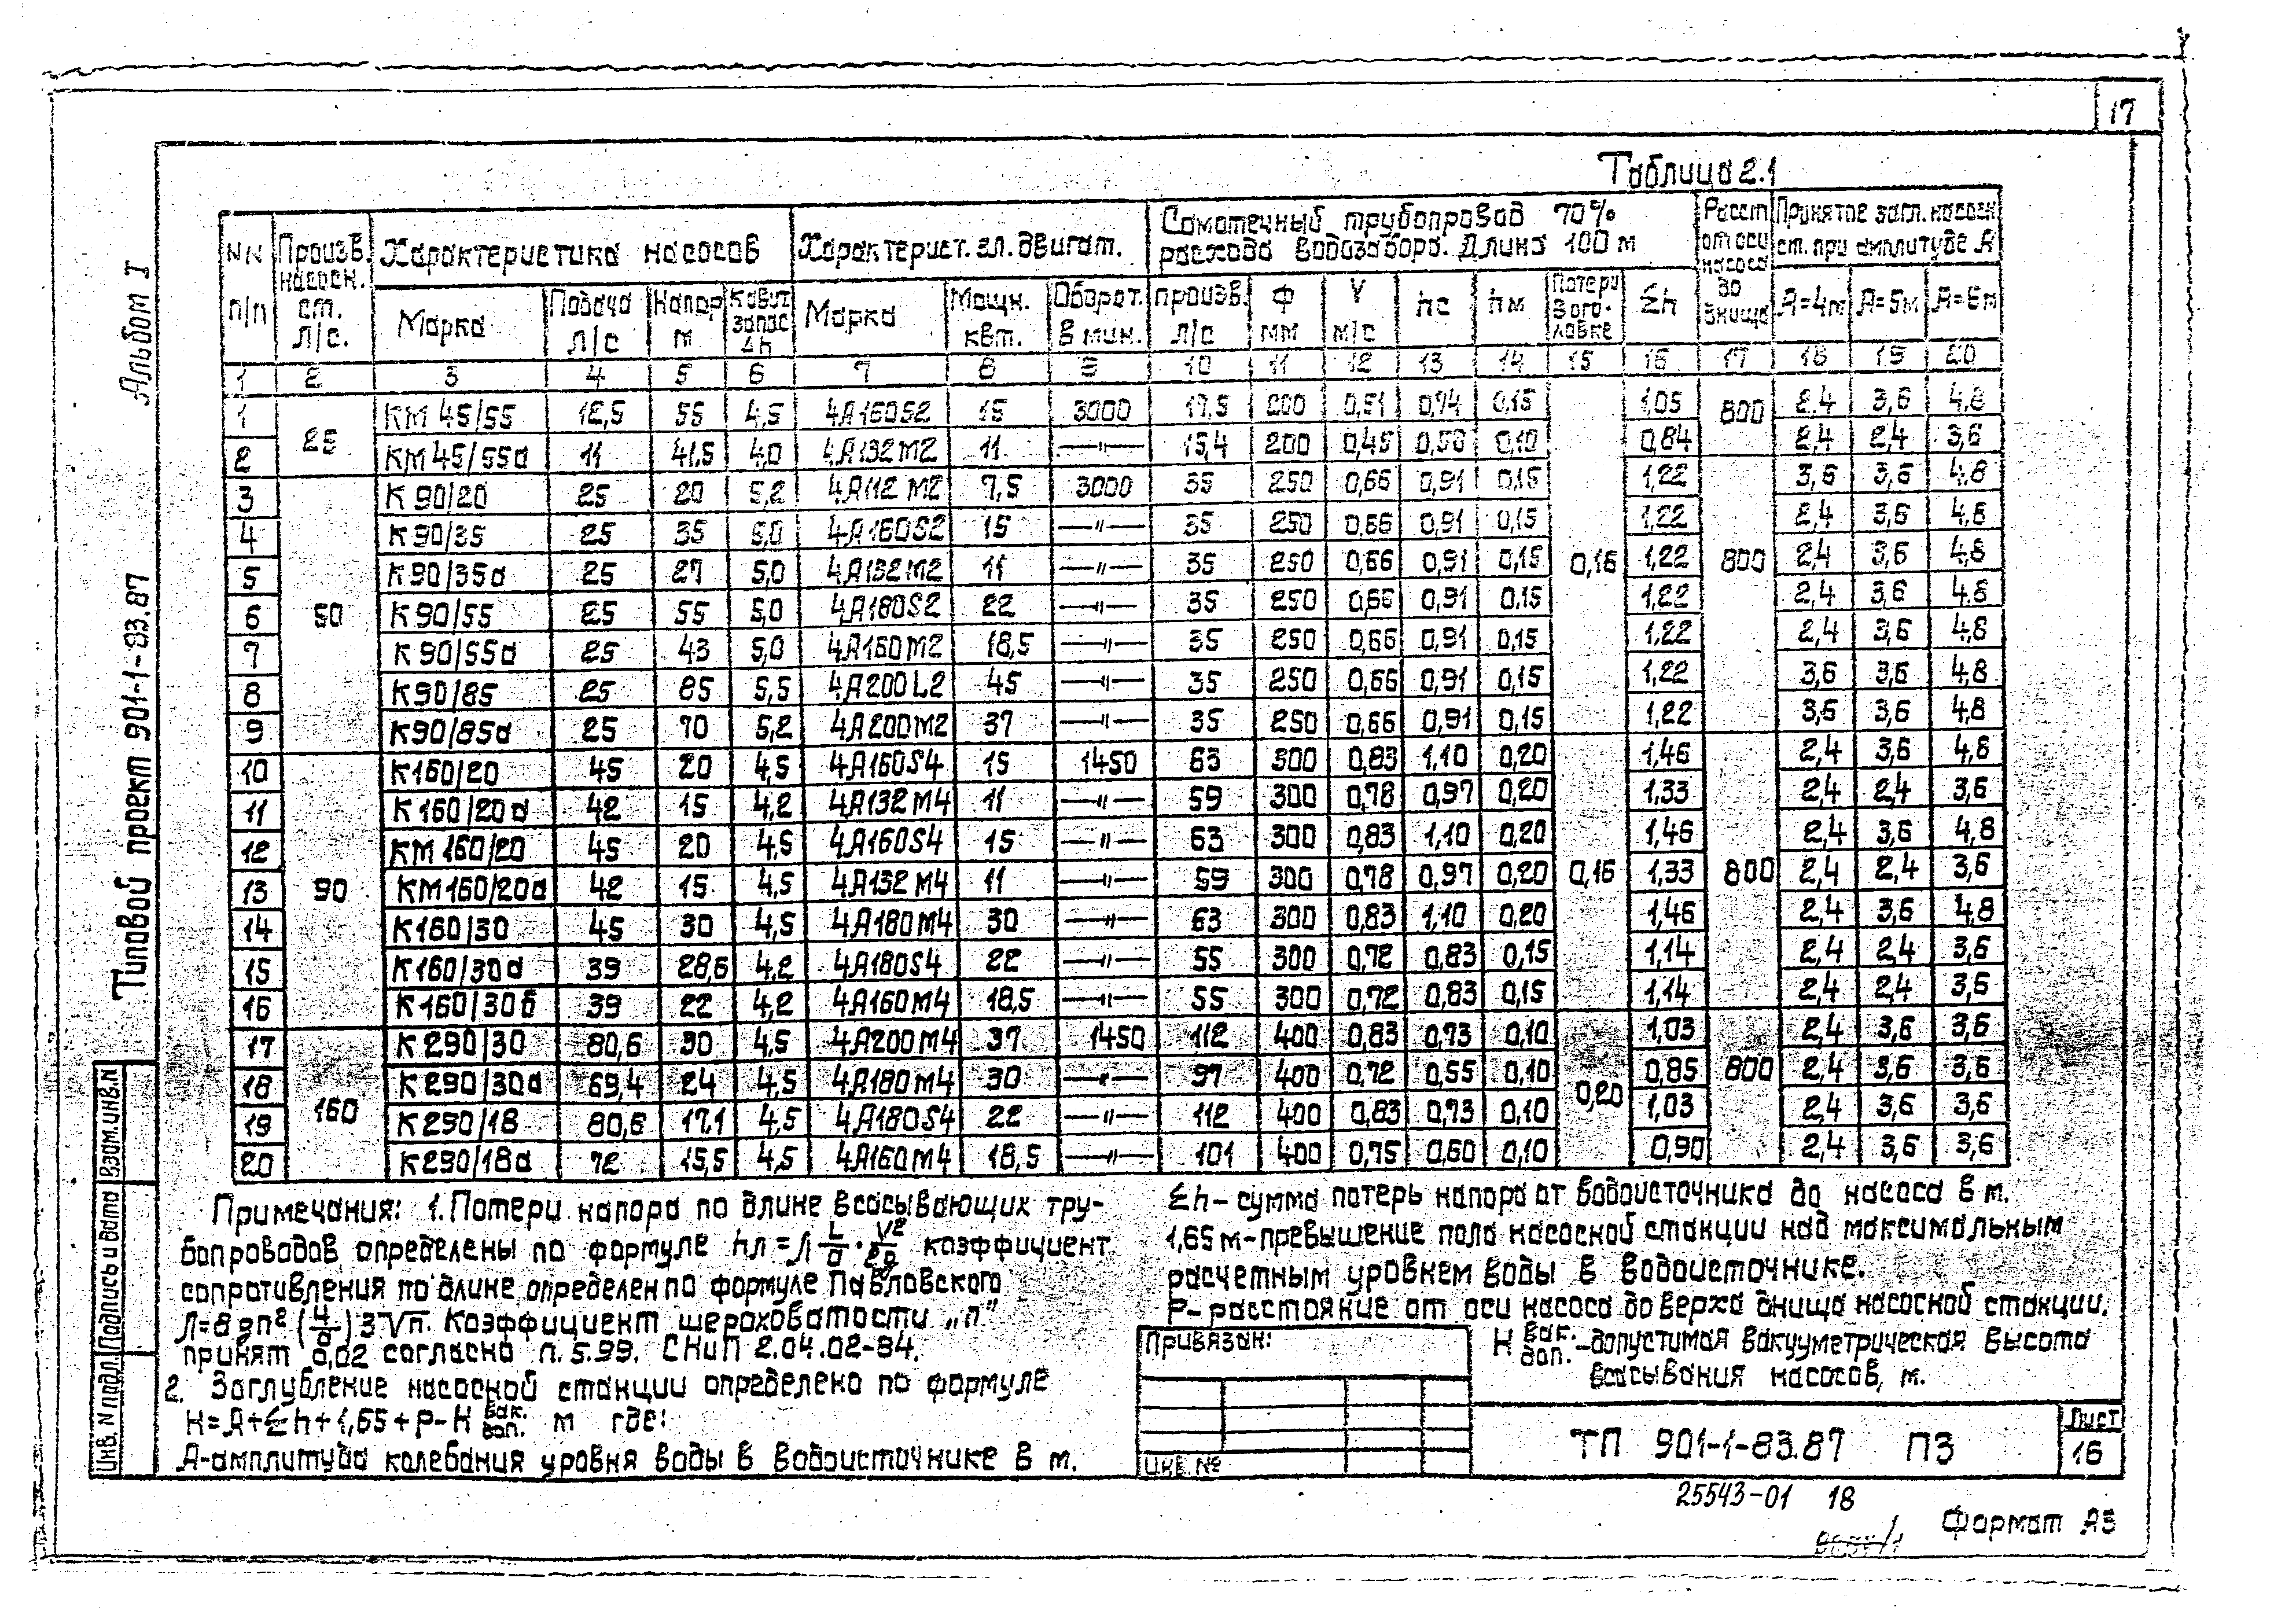 17
Альбом I
Типовой проект 901-1-83.87
Таблица 2.1
NN п/п | Произв. насосн. ст. л/с. | Характеристика насосов | Характерист. эл. двигат. | Самотечный трубопровод 70% расхода водозабора. Длина 100 м | Расст от оси насоса до днища | Принятое загл. насосн. ст. при амплитуде А
Марка | Подача л/с | Напор м | Кавит. запас Δh | Марка | Мощн. квт. | Оборот. в мин. | произв. л/с | Ф мм | V м/с | hс | hм | Потери в ого-ловке | Σh | А=4м | А=5м | А=6м
1 | 2 | 3 | 4 | 5 | 6 | 7 | 8 | 9 | 10 | 11 | 12 | 13 | 14 | 15 | 16 | 17 | 18 | 19 | 20
1 | 25 | КМ 45/55 | 12,5 | 55 | 4,5 | 4А160S2 | 15 | 3000 | 17,5 | 200 | 0,51 | 0,74 | 0,15 | 1,05 | 800 | 2,4 | 3,6 | 4,8
2 | КМ 45/55а | 11 | 41,5 | 4,0 | 4А132М2 | 11 | —"— | 15,4 | 200 | 0,45 | 0,58 | 0,10 | 0,84 | 2,4 | 2,4 | 3,6
3 | 50 | К 90/20 | 25 | 20 | 5,2 | 4А112 М2 | 7,5 | 3000 | 35 | 250 | 0,66 | 0,91 | 0,15 | 0,16 | 1,22 | 800 | 3,6 | 3,6 | 4,8
4 | К 90/35 | 25 | 35 | 5,0 | 4А160S2 | 15 | —"— | 35 | 250 | 0,66 | 0,91 | 0,15 | 1,22 | 2,4 | 3,6 | 4,8
5 | К 90/35а | 25 | 27 | 5,0 | 4А132М2 | 11 | —"— | 35 | 250 | 0,66 | 0,91 | 0,15 | 1,22 | 2,4 | 3,6 | 4,8
6 | К 90/55 | 25 | 55 | 5,0 | 4А180S2 | 22 | —"— | 35 | 250 | 0,66 | 0,91 | 0,15 | 1,22 | 2,4 | 3,6 | 4,8
7 | К 90/55а | 25 | 43 | 5,0 | 4А160М2 | 18,5 | —"— | 35 | 250 | 0,66 | 0,91 | 0,15 | 1,22 | 2,4 | 3,6 | 4,8
8 | К90/85 | 25 | 85 | 5,5 | 4А200L2 | 45 | —"— | 35 | 250 | 0,66 | 0,91 | 0,15 | 1,22 | 3,6 | 3,6 | 4,8
9 | К90/85а | 25 | 70 | 5,2 | 4А200М2 | 37 | —"— | 35 | 250 | 0,66 | 0,91 | 0,15 | 1,22 | 3,6 | 3,6 | 4,8
10 | 90 | К160/20 | 45 | 20 | 4,5 | 4А160S4 | 15 | 1450 | 63 | 300 | 0,83 | 1,10 | 0,20 | 0,16 | 1,46 | 800 | 2,4 | 3,6 | 4,8
11 | К 160/20 а | 42 | 15 | 4,2 | 4А132 М4 | 11 | —"— | 59 | 300 | 0,78 | 0,97 | 0,20 | 1,33 | 2,4 | 2,4 | 3,6
12 | КМ 160/20 | 45 | 20 | 4,5 | 4А160S4 | 15 | —"— | 63 | 300 | 0,83 | 1,10 | 0,20 | 1,46 | 2,4 | 3,6 | 4,8
13 | КМ160/20а | 42 | 15 | 4,5 | 4А132 М4 | 11 | —"— | 59 | 300 | 0,78 | 0,97 | 0,20 | 1,33 | 2,4 | 2,4 | 3,6
14 | К160/30 | 45 | 30 | 4,5 | 4А180М4 | 30 | —"— | 63 | 300 | 0,83 | 1,10 | 0,20 | 1,46 | 2,4 | 3,6 | 4,8
15 | К160/30а | 39 | 28,6 | 4,2 | 4А180S4 | 22 | —"— | 55 | 300 | 0,72 | 0,83 | 0,15 | 1,14 | 2,4 | 2,4 | 3,6
16 | К160/30б | 39 | 22 | 4,2 | 4А160М4 | 18,5 | —"— | 55 | 300 | 0,72 | 0,83 | 0,15 | 1,14 | 2,4 | 2,4 | 3,6
17 | 160 | К 290/30 | 80,6 | 30 | 4,5 | 4А200М4 | 37 | 1450 | 112 | 400 | 0,83 | 0,73 | 0,10 | 0,20 | 1,03 | 800 | 2,4 | 3,6 | 3,6
18 | К 290/30а | 69,4 | 24 | 4,5 | 4А180М4 | 30 | —"— | 97 | 400 | 0,72 | 0,55 | 0,10 | 0,85 | 2,4 | 3,6 | 3,6
19 | К 290/18 | 80,6 | 17,1 | 4,5 | 4А180S4 | 22 | —"— | 112 | 400 | 0,83 | 0,73 | 0,10 | 1,03 | 2,4 | 3,6 | 3,6
20 | К290/18а | 72 | 15,5 | 4,5 | 4А160М4 | 18,5 | —"— | 101 | 400 | 0,75 | 0,60 | 0,10 | 0,90 | 2,4 | 3,6 | 3,6
Примечания: 1. Потери напора по длине всасывающих тру-
бопроводов определены по формуле hл=λ L/d · V²/2g коэффициент
сопротивления по длине определен по формуле Павловского
λ=8gn² (4/d) 3√n. Коэффициент шероховатости „n"
принят 0,02 согласно п. 5.99. СНиП 2.04.02-84.
2. Заглубление насосной станции определено по формуле
Н=А+Σh+1,65+Р-Н вак. доп. м где:
А-амплитуда колебания уровня воды в водоисточнике в м.
Σh-сумма потерь напора от водоисточника до насоса в м.
1,65 м-превышение пола насосной станции над максимальным
расчетным уровнем воды в водоисточнике.
Р-расстояние от оси насоса до верха днища насосной станции.
Н вак. доп. -допустимая вакууметрическая высота
всасывания насосов, м.
Привязан:
Инв. №
ТП 901-1-83.87 ПЗ
Лист
16
Взам.инв.N
Подпись и дата
Инв. N подл.
25543-01 18
Формат А3